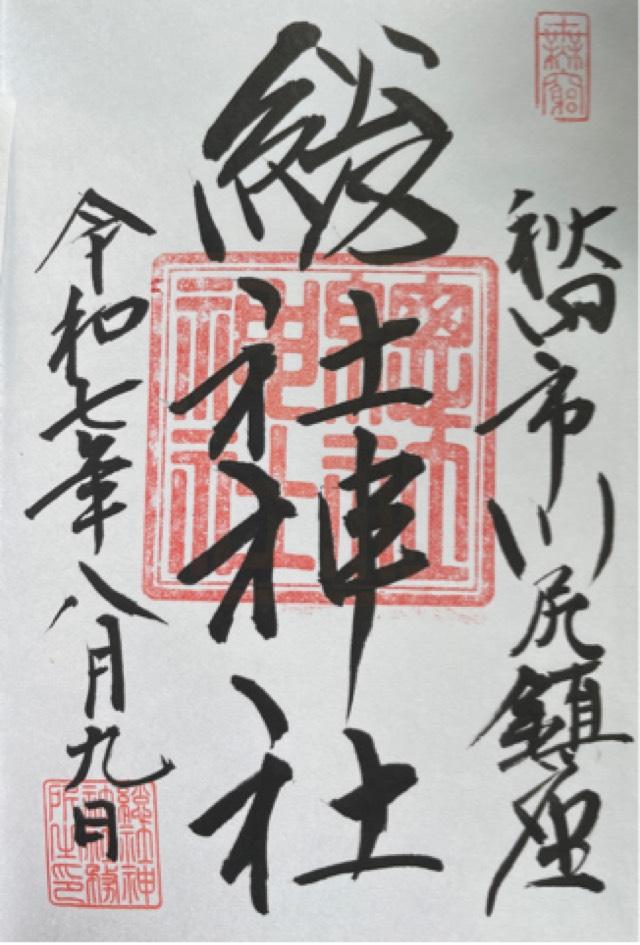 秋田市川尻鎮座
総社神社
令和七年八月九日
總社神社
總社神
社務
所之印